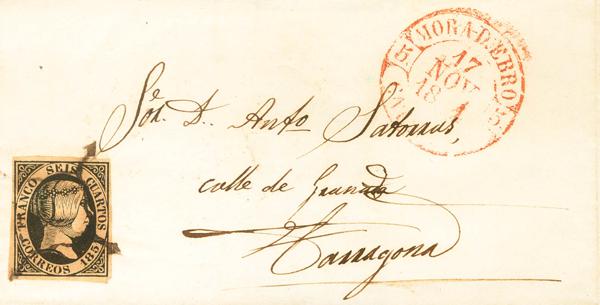 MORA D. EBRO
17
NOV
18 1
5
Sr. Sor. D. Anto Satorras,
calle de Granada
Tarragona
FRANCO SEIS CUARTOS
CORREOS 1851